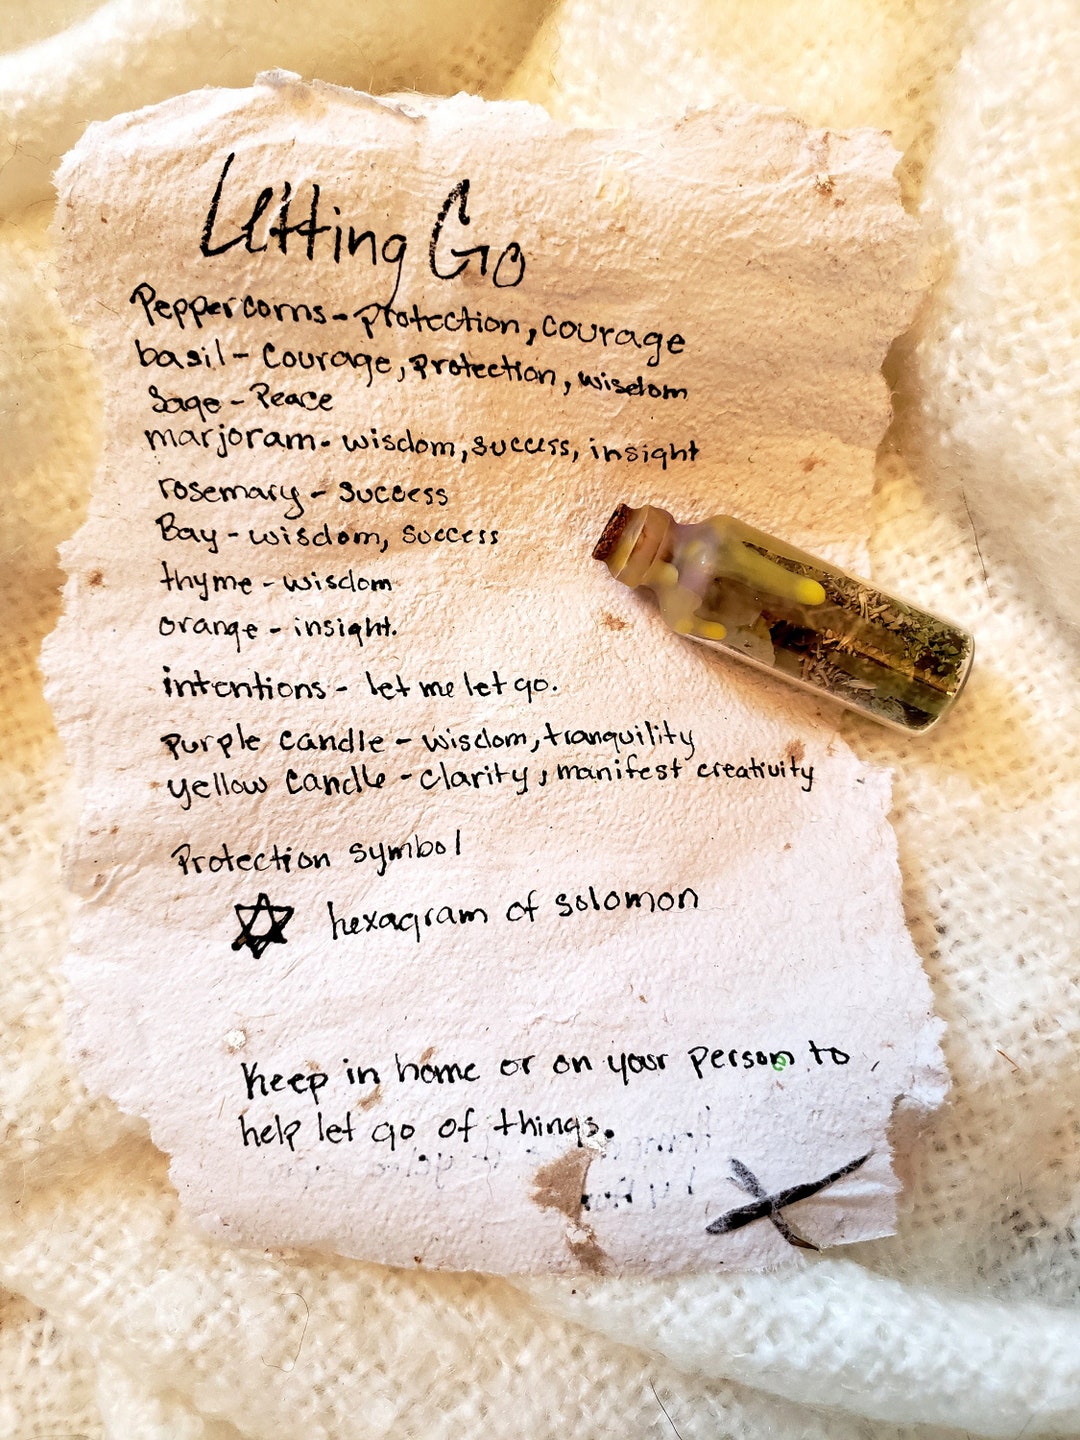 Letting Go
Peppercorns - protection, courage
basil - courage, protection, wisdom
Sage - Peace
marjoram - wisdom, success, insight
rosemary - success
Bay - wisdom, success
thyme - wisdom
orange - insight.
intentions - let me let go.
purple candle - wisdom, tranquility
yellow candle - clarity, manifest creativity
Protection symbol
hexagram of solomon
Keep in home or on your person to
help let go of things.